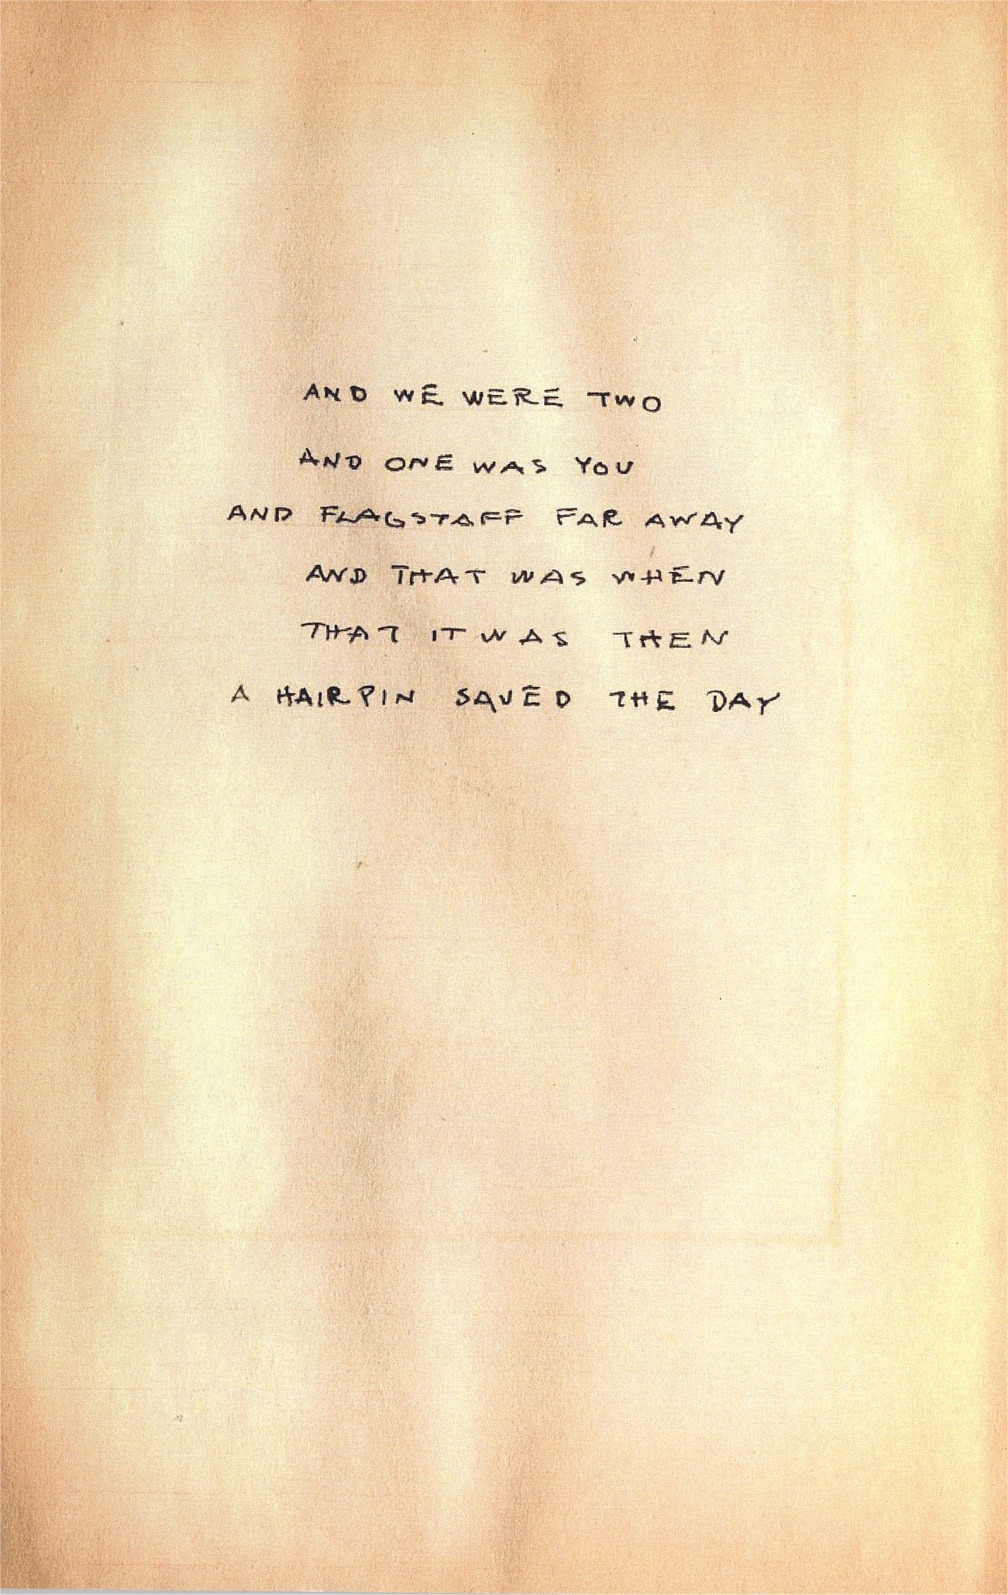 AND WE WERE TWO
AND ONE WAS YOU
AND FLAGSTAFF FAR AWAY
AND THAT WAS WHEN
THAT IT WAS THEN
A HAIRPIN SAVED THE DAY